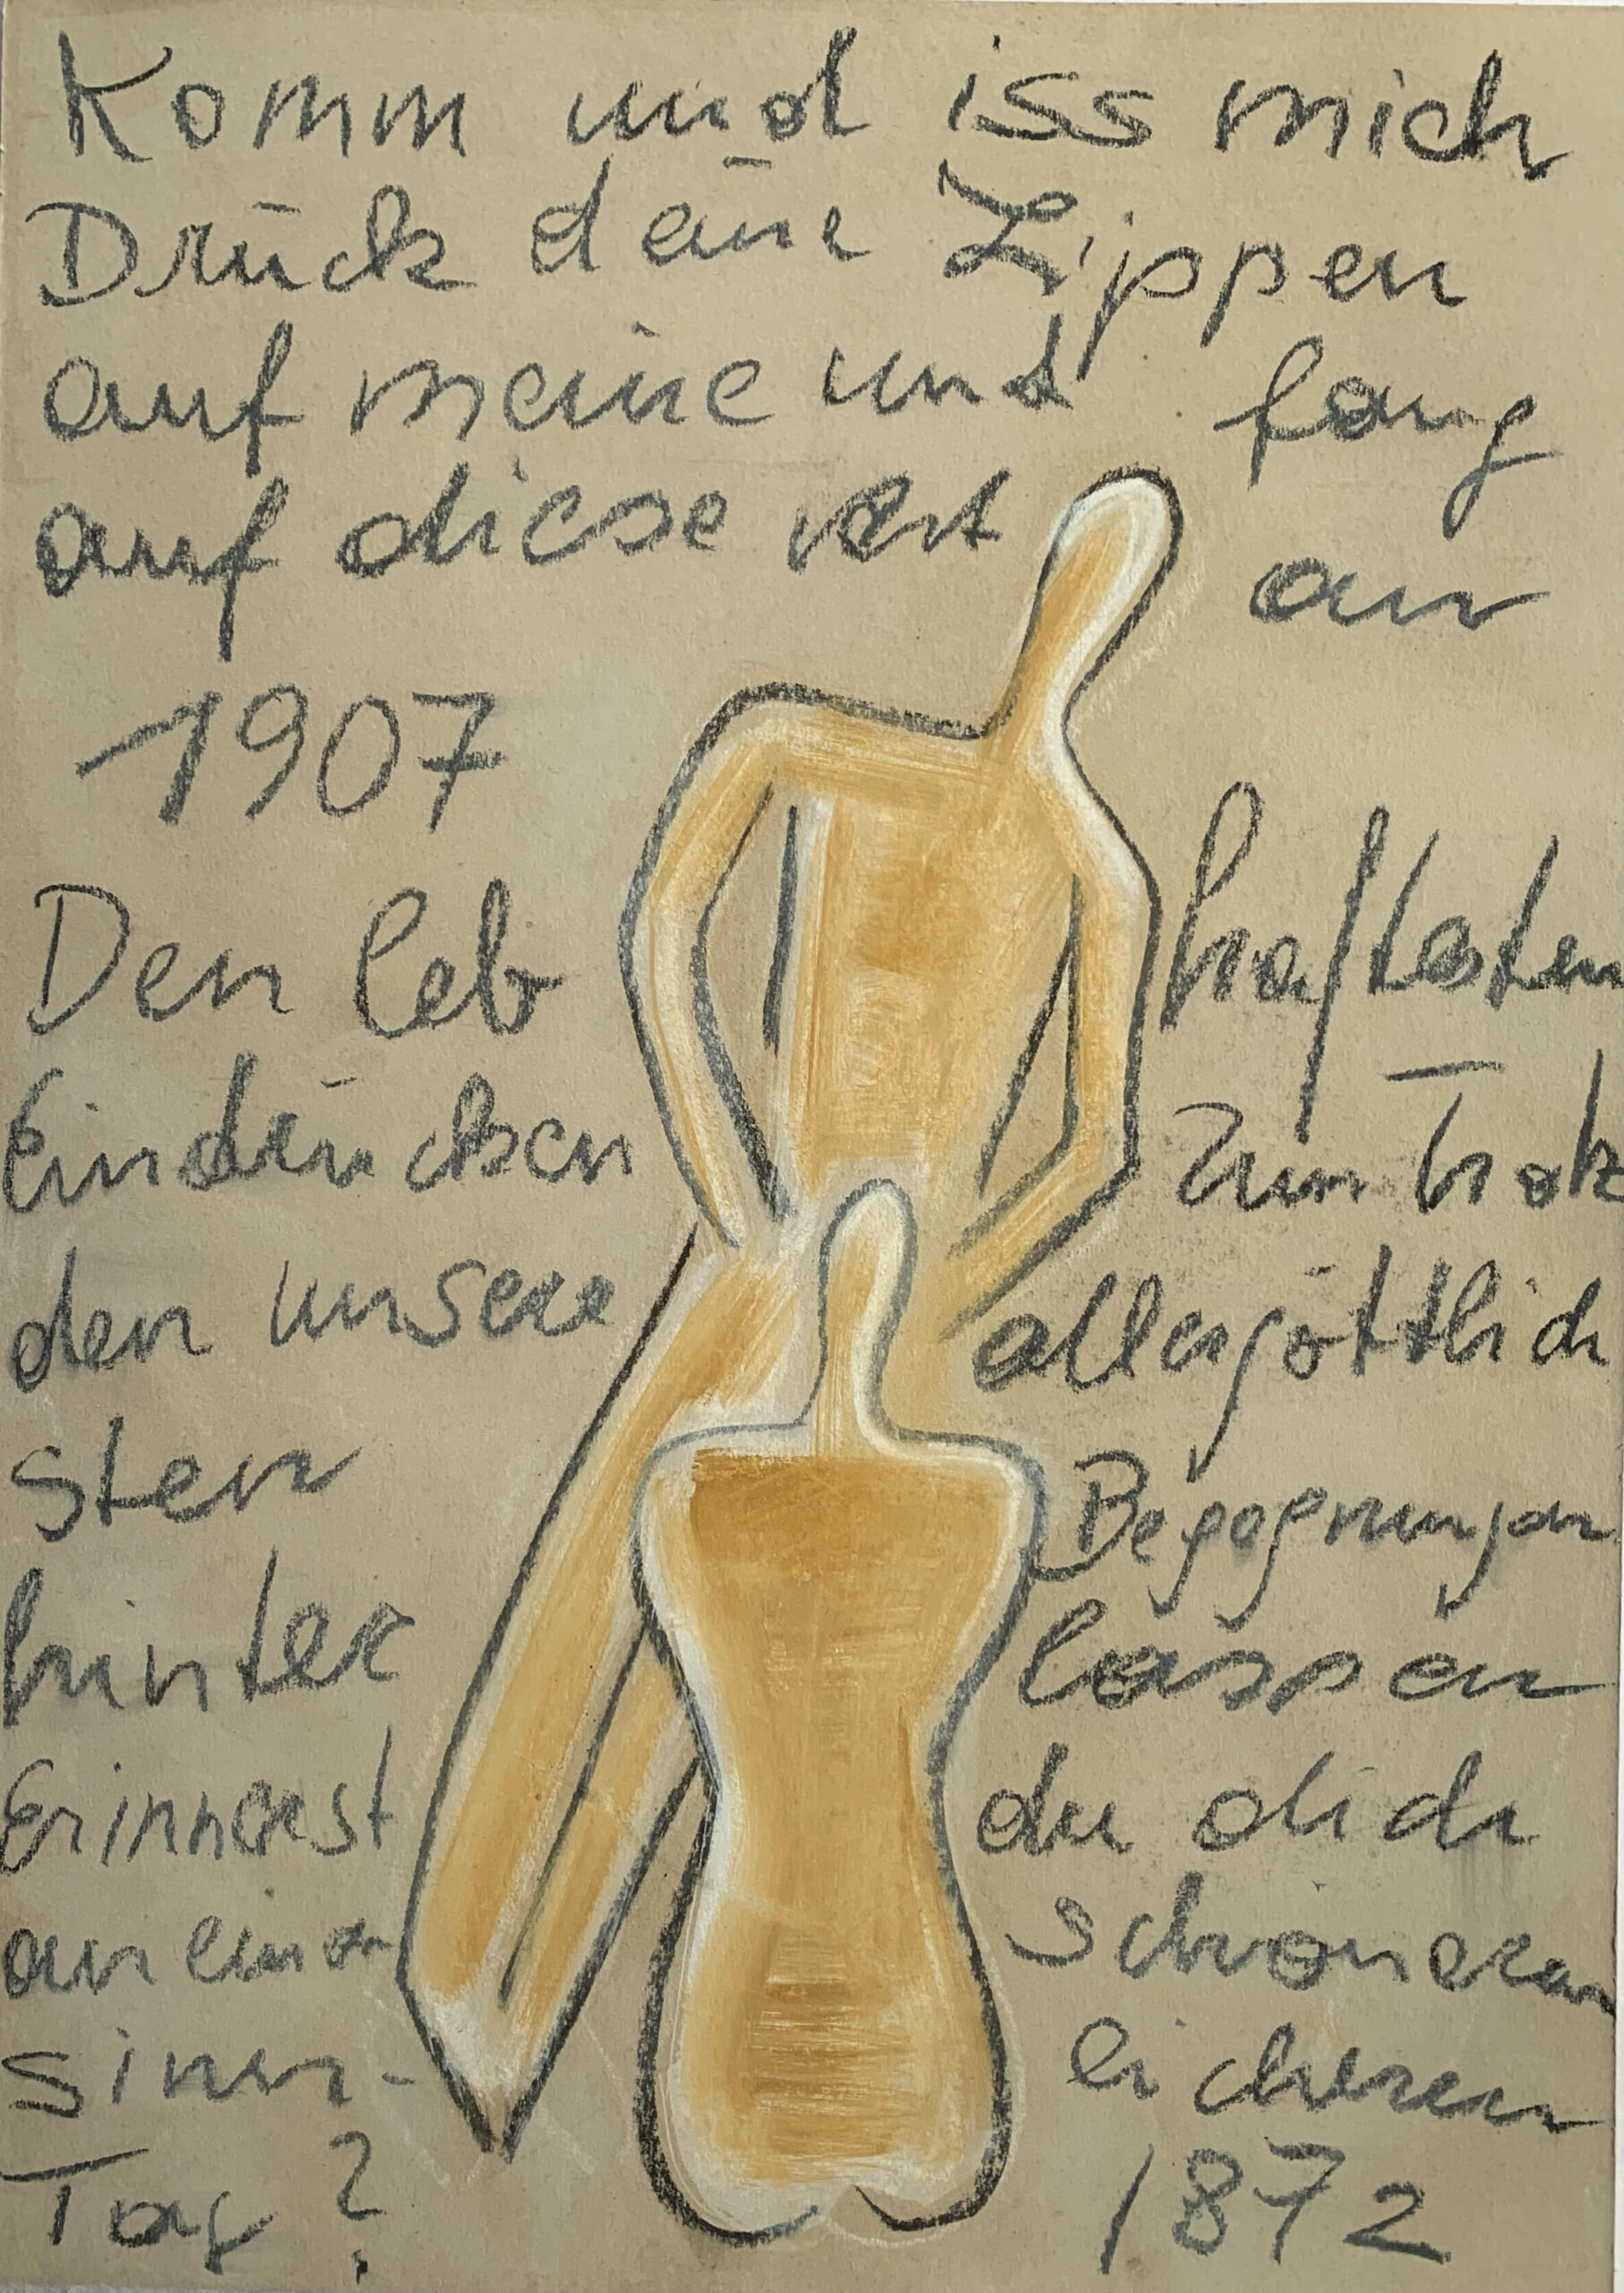 Komm und iss mich
Drück deine Lippen
auf meine und fang
auf diese Art an
1907
Den leb haftesten
Eindrücken zum Trotz
den unsere allergöttlich
sten Begegnungen
hinter lassen
Erinnerst du dich
an einen schöneren
sinn- licheren
Tag? 1872